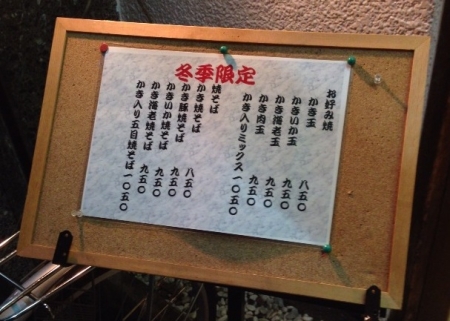 冬季限定
お好み焼
かき玉 八五〇
かきいか玉 九五〇
かき海老玉 九五〇
かき肉玉 九五〇
かき入りミックス 一〇五〇
焼そば
かき焼そば 八五〇
かき豚焼そば 九五〇
かきいか焼そば 九五〇
かき海老焼そば 九五〇
かき入り五目焼そば 一〇五〇